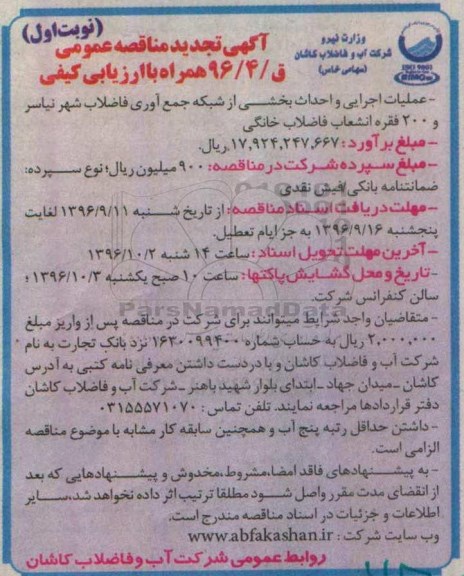 (نوبت اول)
وزارت نیرو
شرکت آب و فاضلاب کاشان
(سهامی خاص)
آگهی تجدید مناقصه عمومی
ق/۹۶/۴ همراه با ارزیابی کیفی
ISO 9001
- عملیات اجرایی و احداث بخشی از شبکه جمع آوری فاضلاب شهر نیاسر
و ۲۰۰ فقره انشعاب فاضلاب خانگی
- مبلغ برآورد: ۱۷,۹۲۴,۲۴۷,۶۶۷ ریال.
- مبلغ سپرده شرکت در مناقصه: ۹۰۰ میلیون ریال؛ نوع سپرده:
ضمانتنامه بانکی/فیش نقدی
- مهلت دریافت اسناد مناقصه: از تاریخ شنبه ۱۳۹۶/۹/۱۱ لغایت
پنجشنبه ۱۳۹۶/۹/۱۶ به جز ایام تعطیل.
- آخرین مهلت تحویل اسناد: ساعت ۱۴ شنبه ۱۳۹۶/۱۰/۲
- تاریخ و محل گشایش پاکتها: ساعت ۱۰ صبح یکشنبه ۱۳۹۶/۱۰/۳؛
سالن کنفرانس شرکت.
- متقاضیان واجد شرایط میتوانند برای شرکت در مناقصه پس از واریز مبلغ
۲,۰۰۰,۰۰۰ ریال به حساب شماره ۱۶۳۰۰۹۹۴۰۰ نزد بانک تجارت به نام
شرکت آب و فاضلاب کاشان و با در دست داشتن معرفی نامه کتبی به آدرس
کاشان - میدان جهاد - ابتدای بلوار شهید باهنر - شرکت آب و فاضلاب کاشان
دفتر قراردادها مراجعه نمایند. تلفن تماس: ۰۳۱۵۵۵۷۱۰۷۰
- داشتن حداقل رتبه پنج آب و همچنین سابقه کار مشابه با موضوع مناقصه
الزامی است.
- به پیشنهادهای فاقد امضا، مشروط، مخدوش و پیشنهادهایی که بعد
از انقضای مدت مقرر واصل شود مطلقا ترتیب اثر داده نخواهد شد، سایر
اطلاعات و جزئیات در اسناد مناقصه مندرج است.
وب سایت شرکت: www.abfakashan.ir
روابط عمومی شرکت آب و فاضلاب کاشان
ParsNamadData